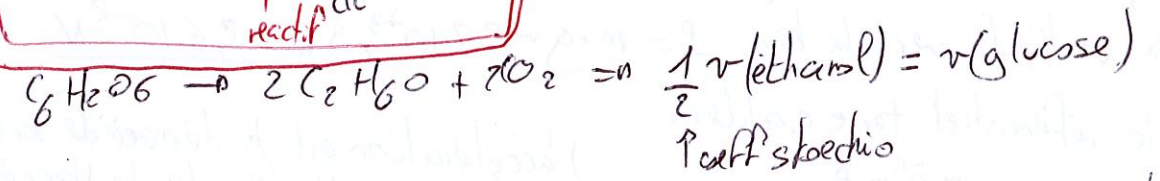 réactif
C6H2O6 → 2C2H6O + 2CO2 => 1/2 v(éthanol) = v(glucose)
↑ coeff stoechio